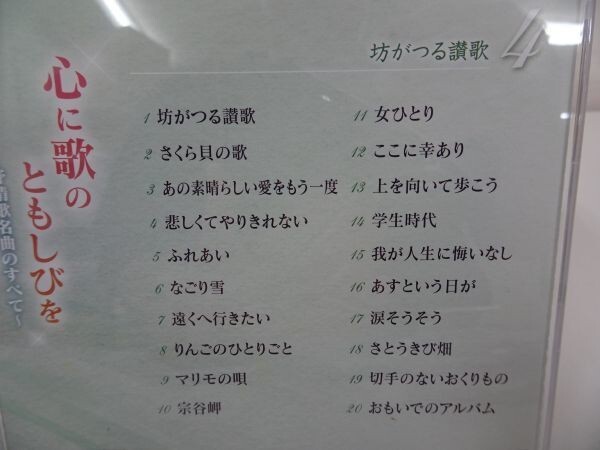 心に歌の
ともしびを
情歌名曲のすべて~
坊がつる讃歌 4
1 坊がつる讃歌
2 さくら貝の歌
3 あの素晴らしい愛をもう一度
4 悲しくてやりきれない
5 ふれあい
6 なごり雪
7 遠くへ行きたい
8 りんごのひとりごと
9 マリモの唄
10 宗谷岬
11 女ひとり
12 ここに幸あり
13 上を向いて歩こう
14 学生時代
15 我が人生に悔いなし
16 あすという日が
17 涙そうそう
18 さとうきび畑
19 切手のないおくりもの
20 おもいでのアルバム